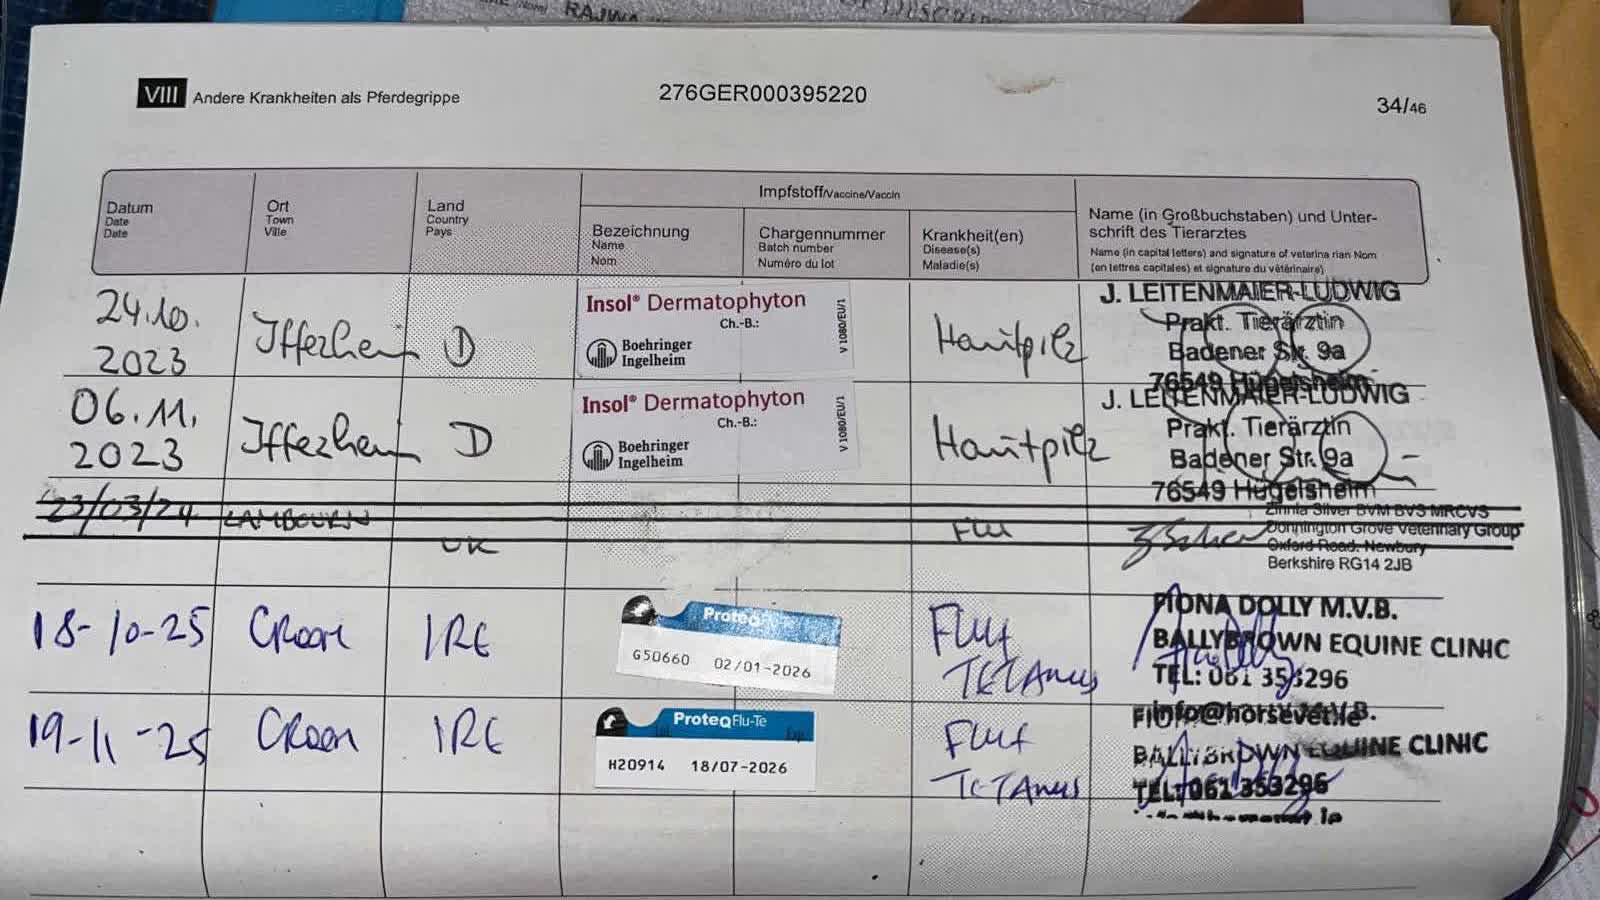 RAJWA
VIII Andere Krankheiten als Pferdegrippe
276GER000395220
34/46
Datum
Date
Date
Ort
Town
Ville
Land
Country
Pays
Impfstoff/Vaccine/Vaccin
Bezeichnung
Name
Nom
Chargennummer
Batch number
Numéro du lot
Krankheit(en)
Disease(s)
Maladie(s)
Name (in Großbuchstaben) und Unter-
schrift des Tierarztes
Name (in capital letters) and signature of veterina rian Nom
(en lettres capitales) et signature du vétérinaire)
24.10.
2023
Iffezheim
D
Insol® Dermatophyton
Ch.-B.:
Boehringer
Ingelheim
V 1080/EU/1
Hautpilz
J. LEITENMAIER-LUDWIG
Prakt. Tierärztin
Badener Str. 9a
76549 Hügelsheim
06.11.
2023
Iffezheim
D
Insol® Dermatophyton
Ch.-B.:
Boehringer
Ingelheim
V 1080/EU/1
Hautpilz
J. LEITENMAIER-LUDWIG
Prakt. Tierärztin
Badener Str. 9a
76549 Hügelsheim
23/03/24
LAMBOURN
UK
FLU
Zinnia Silver BVM BVS MRCVS
Donnington Grove Veterinary Group
Oxford Road, Newbury
Berkshire RG14 2JB
18-10-25
CROOM
IRE
ProteqFlu
G50660 02/01-2026
FLu+
TETANUS
FIONA DOLLY M.V.B.
BALLYBROWN EQUINE CLINIC
TEL: 061 353296
info@horsevet.ie
19-11-25
CROOM
IRE
ProteqFlu-Te
Exp
H20914 18/07-2026
FLu+
TETANUS
M.V.B.
BALLYBROWN EQUINE CLINIC
TEL: 061 353296